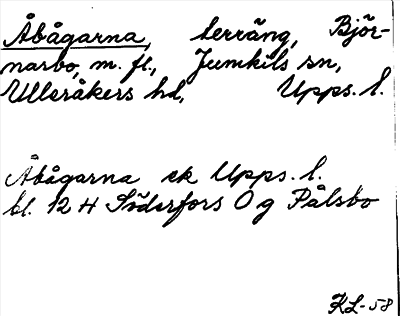 Åbågarna, terräng, Björ-
narbo, m. fl., Jumkils sn,
Ulleråkers hd, Upps. l.
Åbågarna ek Upps. l.
bl. 12 H Söderfors O g Pålsbo
KL-58